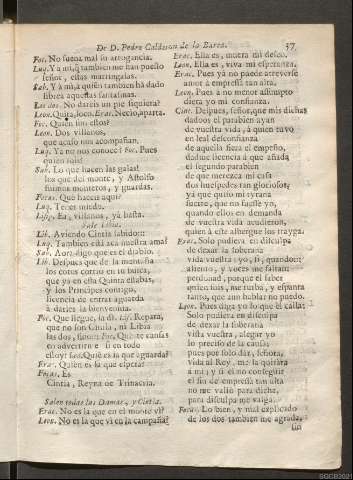 De D. Pedro Calderon de la Barca. 37
For. No suena mal su arrogancia.
Luq. Y à mi, q̃ tambien me han puesto
señor, estas martingalas.
Sab. Y à mi, à quien tambien ha dado
librea aquestas fantasmas.
Los dos. No dareis un pie siquiera?
Leon. Quita, loco. Erac. Necio, aparta.
For. Quien son estos?
Leon. Dos villanos,
que acaso nos acompañan.
Luq. Ya no nos conoce? Foc. Pues
quien sois?
Sab. Lo que hacen las galas!
los que del monte, y Astolfo
fuimos monteros, y guardas.
Focas. Que haceis aqui?
Luq. Tener miedo.
Lisip. Ea, villanos, yà basta.
Sale Libia.
Lib. Aviendo Cintia sabido
Luq. Tambien està acà nuestra ama?
Sab. Aora digo que es el diablo.
Lib. Despues que de la montaña
los cotos corriò en tu busca,
que ya en esta Quinta estabas,
y los Principes contigo,
licencia de entrar aguarda
à darles la bienvenida.
Foc. Que llegue, la di. Repara,
que no son Cintia, ni Libia
las dos, Foc. Que te cansas
en advertirme si en todo
estoy? Leon. Quièn es la que aguarda?
Erac. Quien es la que espera?
Focas. Es
Cintia, Reyna de Trinacria.
Salen todas las Damas, y Cintia.
Erac. No es la que en el monte vi?
Leon. No es la que vi en la campaña?
Erac. Ella es, muera mi deseo.
Leon. Ella es, viva mi esperanza.
Erac. Pues yà no puede atreverse
amor à empressa tan alta.
Leon. Pues à no menor assumpto
diera yo mi confianza.
Cint. Despues, señor, que mis dichas
dadoos el parabien ayan
de vuestra vida, à quien tuvo
en leal desconfianza
de aquella fiera el empeño,
dadme licencia à que añada
el segundo parabien
de que merezca mi casa
dos huespedes tan gloriosos,
yà que quiso mi tyrana
suerte, que no fuesse yo,
quando ellos en demanda
de vuestra vida acudieron,
quien à este albergue los trayga.
Erac. Solo pudiera en disculpa
de dexar la soberana
vida vuestra; yo, si, quando
aliento, y voces me faltan;
perdonad, porque el saber
quien sois, me turba, y espanta
tanto, que aun hablar no puedo.
Leon. Pues diga yo lo que èl calla:
Solo pudiera en disculpa
de dexar la soberana
vista vuestra, elegir yo
lo preciso de la causa;
pues por solo dar, señora,
vida al Rey, me la quitàra
à mi; y si el no conseguir
el fin de empressa tan alta
no me valiò para dicha,
para disculpa me valga.
Focas. Lo bien, y mal explicado
de los dos tambien me agrada,
SGCB2021